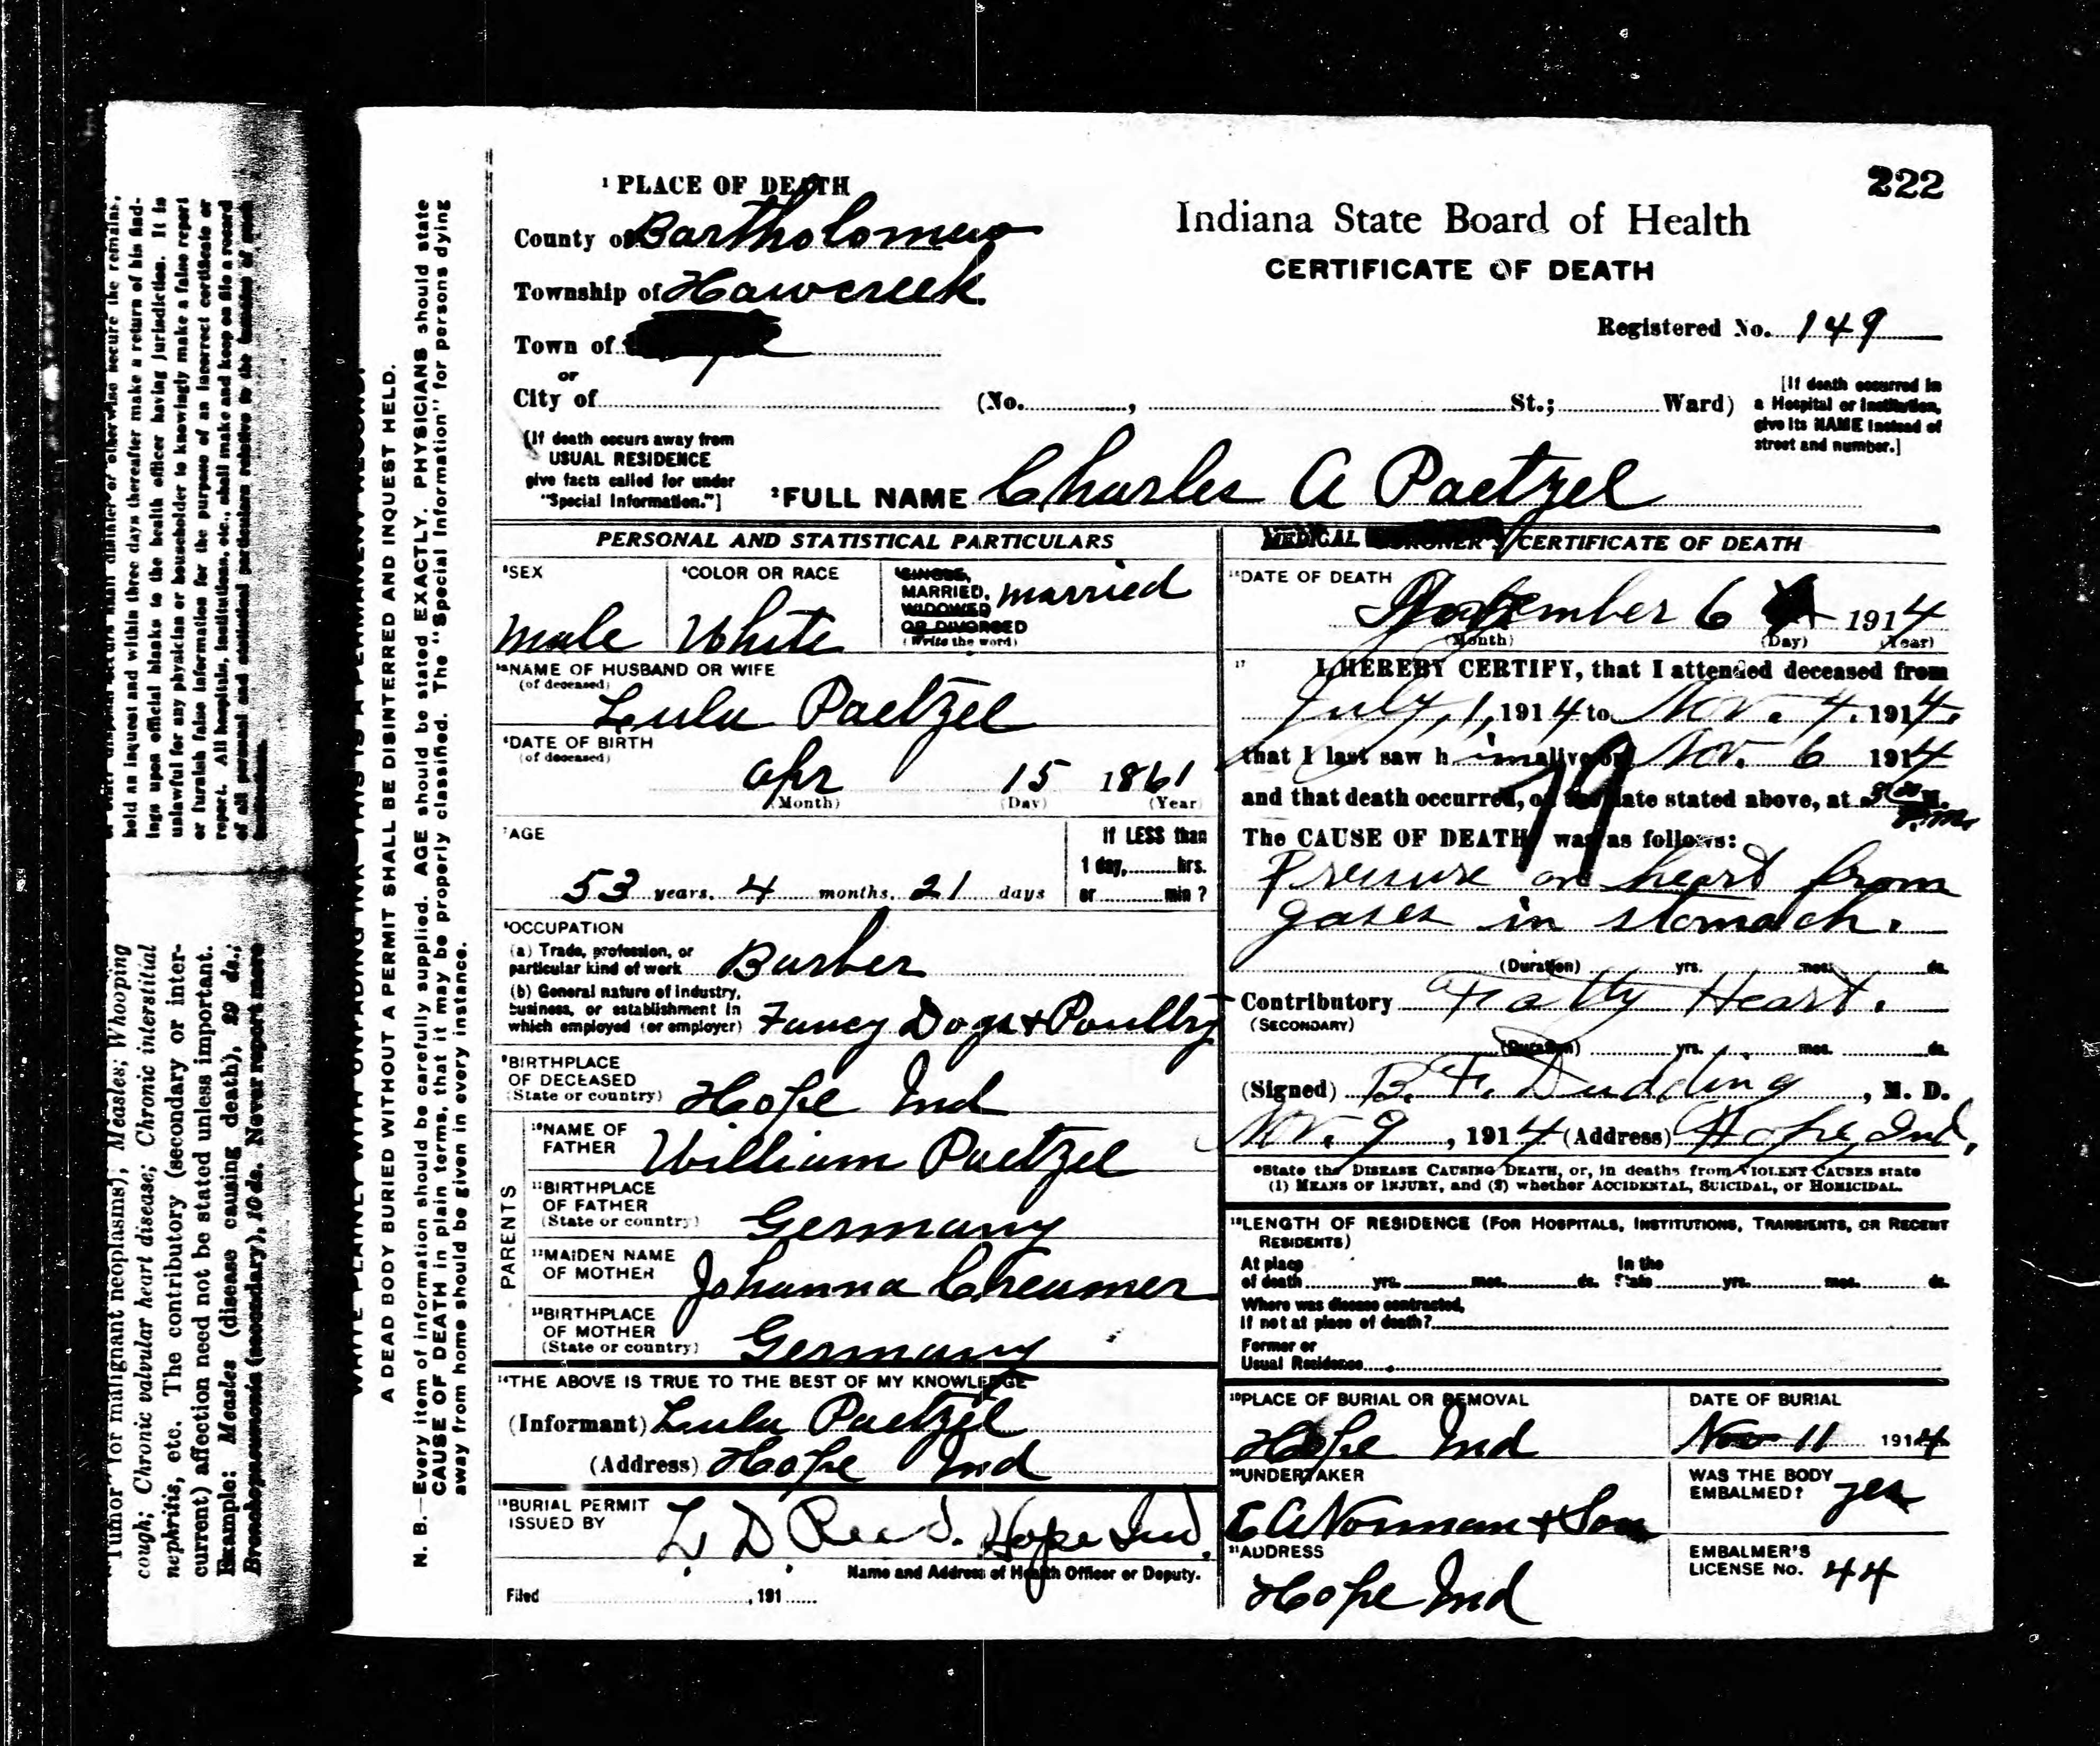 222
1 PLACE OF DEATH
Indiana State Board of Health
County of Bartholomew
CERTIFICATE OF DEATH
Township of Hawcreek
Registered No. 149
Town of
or
City of (No. , St.; Ward)
[If death occurred in
a Hospital or Institution,
give its NAME instead of
street and number.]
(If death occurs away from
USUAL RESIDENCE
give facts called for under
"Special Information."]
2 FULL NAME Charles A Paetzel
PERSONAL AND STATISTICAL PARTICULARS
3 SEX
male
4 COLOR OR RACE
White
5 SINGLE,
MARRIED,
WIDOWED
OR DIVORCED
(Write the word)
married
5a NAME OF HUSBAND OR WIFE
(of deceased)
Lulu Paetzel
6 DATE OF BIRTH
(of deceased)
Apr 15 1861
(Month) (Day) (Year)
7 AGE
If LESS than
1 day, hrs.
or min?
53 years, 4 months, 21 days
8 OCCUPATION
(a) Trade, profession, or
particular kind of work Barber
(b) General nature of industry,
business, or establishment in
which employed (or employer) Fancy Dogs + Poultry
9 BIRTHPLACE
OF DECEASED
(State or country) Hope Ind
PARENTS
10 NAME OF
FATHER William Paetzel
11 BIRTHPLACE
OF FATHER
(State or country) Germany
12 MAIDEN NAME
OF MOTHER Johanna Chreamer
13 BIRTHPLACE
OF MOTHER
(State or country) Germany
14 THE ABOVE IS TRUE TO THE BEST OF MY KNOWLEDGE
(Informant) Lulu Paetzel
(Address) Hope Ind
15 BURIAL PERMIT
ISSUED BY L. D. Reed. Hope Ind.
Name and Address of Health Officer or Deputy.
Filed , 191
MEDICAL CORONER'S CERTIFICATE OF DEATH
16 DATE OF DEATH
November 6 1914
(Month) (Day) (Year)
17 I HEREBY CERTIFY, that I attended deceased from
July, 1, 1914 to Nov. 4. 1914,
that I last saw him alive on Nov. 6 1914
and that death occurred, on the date stated above, at M.
P.m.
The CAUSE OF DEATH was as follows:
Pressure on heart from
gases in stomach.
(Duration) yrs. mos. ds.
Contributory Fatty Heart.
(SECONDARY)
(Duration) yrs. mos. ds.
(Signed) B. F. Dudding, M. D.
Nov. 9, 1914 (Address) Hope, Ind,
*State the DISEASE CAUSING DEATH, or, in deaths from VIOLENT CAUSES state
(1) MEANS OF INJURY, and (2) whether ACCIDENTAL, SUICIDAL, or HOMICIDAL.
18 LENGTH OF RESIDENCE (FOR HOSPITALS, INSTITUTIONS, TRANSIENTS, OR RECENT
RESIDENTS)
At place In the
of death yrs. mos. ds. State yrs. mos. ds.
Where was disease contracted,
If not at place of death?
Former or
Usual Residence
19 PLACE OF BURIAL OR REMOVAL
Hope Ind
DATE OF BURIAL
Nov 11 1914
20 UNDERTAKER
E A Norman + Son
WAS THE BODY
EMBALMED? yes
21 ADDRESS
Hope Ind
EMBALMER'S
LICENSE No. 44
WRITE PLAINLY WITH UNFADING INK—THIS IS A PERMANENT RECORD.
A DEAD BODY BURIED WITHOUT A PERMIT SHALL BE DISINTERRED AND INQUEST HELD.
N. B.—Every item of information should be carefully supplied. AGE should be stated EXACTLY. PHYSICIANS should state
CAUSE OF DEATH in plain terms, that it may be properly classified. The "Special Information" for persons dying
away from home should be given in every instance.
held an inquest and within three days thereafter make a return of his find-
ings upon official blanks to the health officer having jurisdiction. It is
unlawful for any physician or householder to knowingly make a false report
or furnish false information for the purpose of an incorrect certificate or
report. All hospitals, institutions, etc., shall make and keep on file a record
of all personal and statistical particulars relative to the
"Tumor" for malignant neoplasms); Measles; Whooping
cough; Chronic valvular heart disease; Chronic interstitial
nephritis, etc. The contributory (secondary or inter-
current) affection need not be stated unless important.
Example: Measles (disease causing death), 29 ds.;
Bronchopneumonia (secondary), 10 ds. Never report mere